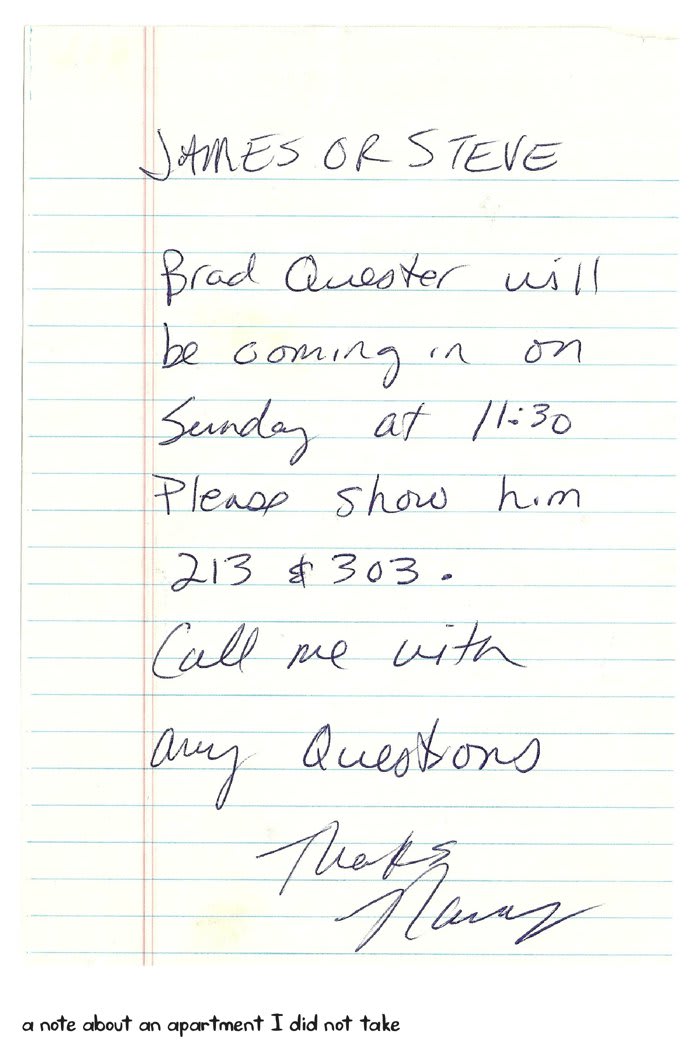 JAMES OR STEVE
Brad Quester will
be coming in on
Sunday at 11:30
Please show him
213 & 303.
Call me with
any Questions
Thanks
Nancy
a note about an apartment I did not take